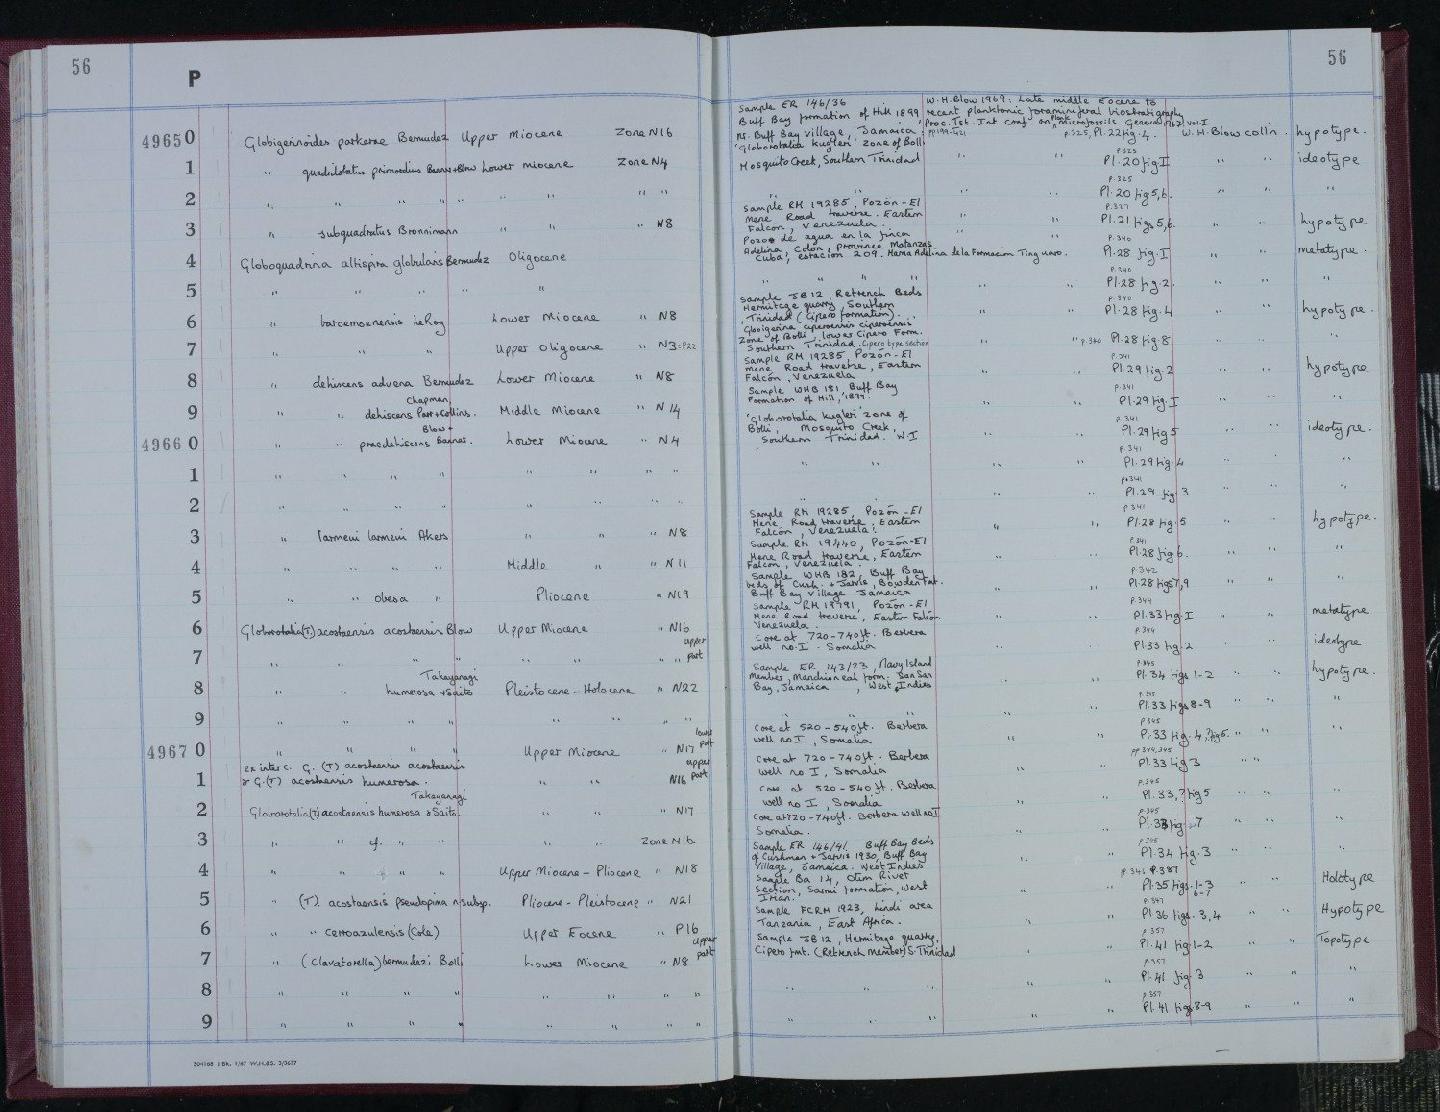 56
P
49650 Globigerinoides parkerae Bermudez Upper Miocene Zone N16
1 " quadrilobatus primordius Banner + Blow Lower miocene Zone N4
2 " " " " " " " " "
3 " subquadratus Bronnimann " " " N8
4 Globoquadrina altispira globularis Bermudez Oligocene
5 " " " " "
6 " baroemoenensis LeRoy Lower Miocene " N8
7 " " " Upper Oligocene " N3=P22
8 " dehiscens advena Bermudez Lower Miocene " N8
Chapman,
9 " " dehiscens Parr + Collins. Middle Miocene " N14
Blow +
49660 " " praedehiscens Banner. Lower Miocene " N4
1 " " " "
2 " " " "
3 " larmeui larmeui Akers " " " N8
4 " " " " Middle " " N11
5 " " obesa " Pliocene " N19
6 Globorotalia (T.) acostaensis acostaensis Blow Upper Miocene " N16
upper
7 " " " " " " " " part
Takayanagi
8 " " humerosa + Saito Pleistocene - Holocene " N22
9 " " " " " " " "
lower
49670 " " " " Upper Miocene " N17 part
ex interc. G. (T) acostaensis acostaensis upper
1 & G.(T) acostaensis humerosa. " " N16 part
Takayanagi
2 Globorotalia (T) acostaensis humerosa & Saito. " " " N17
3 " " cf. " " " " Zone N16
4 " " " " Upper Miocene - Pliocene " N18
5 " (T) acostaensis pseudopima n subsp. Pliocene - Pleistocene " N21
6 " " cerroazulensis (Cole) Upper Eocene " P16
upper
7 " (Clavatorella) bermudezi Bolli Lower Miocene " N8 part
8 " " " " " " " "
9 " " " " " " " "
304168 1Bk. 7/67 W.H.&S. 3/3627
56
Sample ER 146/36 W.H.Blow 1969: Late middle Eocene to
Buff Bay formation of Hill 1899 recent planktonic foraminiferal biostratigraphy
nr. Buff Bay village, Jamaica pp 199-421 p.325, Pl. 22 fig. 4. W.H.Blow colln. hypotype.
'Globorotalia kugleri' zone of Bolli
Mosquito Creek, Southern Trinidad " " p.325 Pl. 20 fig I " " ideotype
" " " " " p.325 Pl. 20 fig 5,6. " " "
Sample RM 19285, Pozon - El
Mene Road traverse. Eastern
Falcon, Venezuela. " " p.327 Pl. 21 figs 5,6 " " hypotype.
Pozo de agua en la finca
Adelina, Colon, province Matanzas
Cuba, estacion 209. Maria Adelina de la Formacion Tinguaro. p.340 Pl. 28 fig. I " " metatype.
" " " p.340 Pl. 28 fig. 2. " " "
Sample JB12 Retrench Beds
Hermitage quarry, Southern
Trinidad (Cipero formation). " " p.340 Pl. 28 fig. 4 " " hypotype.
Globigerina ciperoensis ciperoensis
zone of Bolli, lower Cipero Form.
Southern Trinidad. Cipero type section " " p.340 Pl. 28 fig. 8 " " "
Sample RM 19285, Pozon - El
mene Road traverse, Eastern
Falcon, Venezuela " " p.341 Pl. 29 fig. 2 " " hypotype
Sample WHB 181, Buff Bay
Formation of Hill, 1899. " " p.341 Pl. 29 fig. I " " "
'Globorotalia kugleri' zone of
Bolli, Mosquito Creek,
Southern Trinidad. W.I " " p.341 Pl. 29 fig 5 " " ideotype.
" " " " p.341 Pl. 29 fig. 4 " " "
" " p.341 Pl. 29 fig. 3 " " "
Sample RM 19285, Pozón - El
Mene Road traverse, Eastern
Falcon, Venezuela. " " p.341 Pl. 28 fig. 5 " " hypotype.
Sample RM 19440, Pozón - El
Mene Road traverse, Eastern
Falcon, Venezuela. " " p.341 Pl. 28 fig 6. " " "
Sample WHB 182, Buff Bay
beds of Cush. + Jarvis, Bowden Fmt.
Buff Bay village Jamaica " " p.342 Pl. 28 figs 7,9 " " "
Sample RM 19791, Pozón - El
Mene Road traverse, Eastern Falcon
Venezuela. " " p.344 Pl. 33 fig. I " " metatype
core at 720-740ft. Berbera
well no. I - Somalia " " p.344 Pl. 33 fig. 2 " " ideotype
Sample ER 143/23, Navy Island
Member, Manchioneal form. San San
Bay, Jamaica, West Indies " " p.345 Pl. 34 figs 1-2 " " hypotype.
" " " p.345 Pl. 33 figs 8-9 "
core at 520-540ft. Berbera
well no I, Somalia " " p.345 Pl. 33 fig. 4, ?fig 6. " " "
core at 720-740ft. Berbera
well no I, Somalia pp 344,345 Pl. 33 fig 3 " "
core at 520-540ft. Berbera
well no I, Somalia " " p.345 Pl. 33, ?fig 5 " " "
core at 720-740ft. Berbera well no I
Somalia. p.345 Pl. 33 fig. 7 " " "
Sample ER 146/41. Buff Bay Beds
of Cushman + Jarvis 1930, Buff Bay
village, Jamaica. West Indies " " Pl. 34 fig. 3 " " "
Sample Ba 14, River
section, Sarmi formation, West
Irian. p.346 p.387 Pl. 35 figs. 1-3 6-7 " " Holotype
Sample FCRM 1923, Lindi area
Tanzania, East Africa. " " p.347 Pl. 36 figs. 3,4 " " Hypotype
Sample JB12, Hermitage quarry,
Cipero fmt. (Retrench member) S. Trinidad p.357 Pl. 41 fig. 1-2 " " Topotype
" " " " p.357 Pl. 41 fig. 3 " " "
" " " " p.357 Pl. 41 figs 8-9 " " "